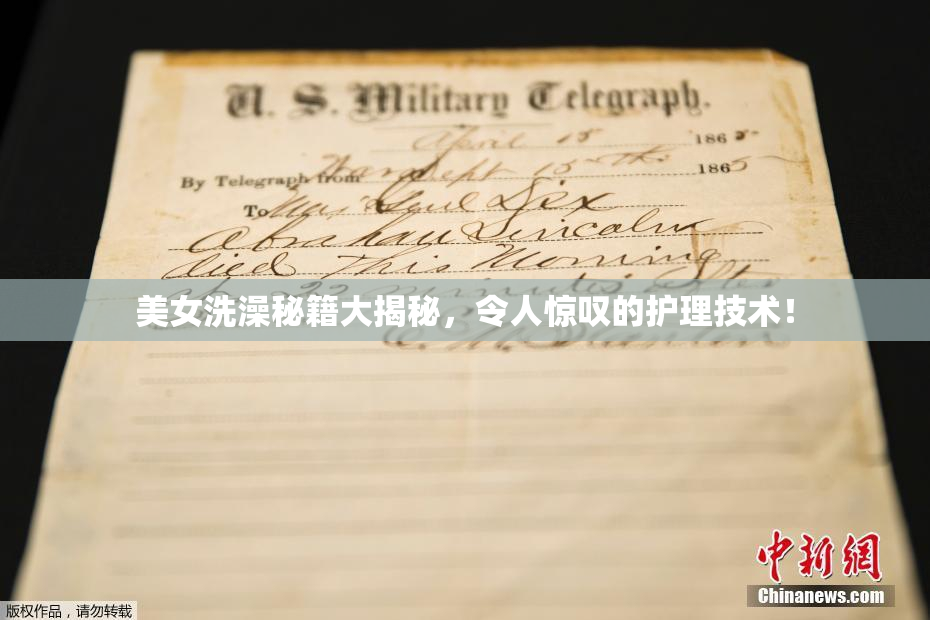 U. S. Military Telegraph.
April 15 1865
By Telegraph from War Dept 15th 1865
To Maj Genl Dix
Abraham Lincoln
died This Morning
at 22 minutes after
美女洗澡秘籍大揭秘，令人惊叹的护理技术！
E. M. Stanton
中新网
Chinanews.com
版权作品，请勿转载